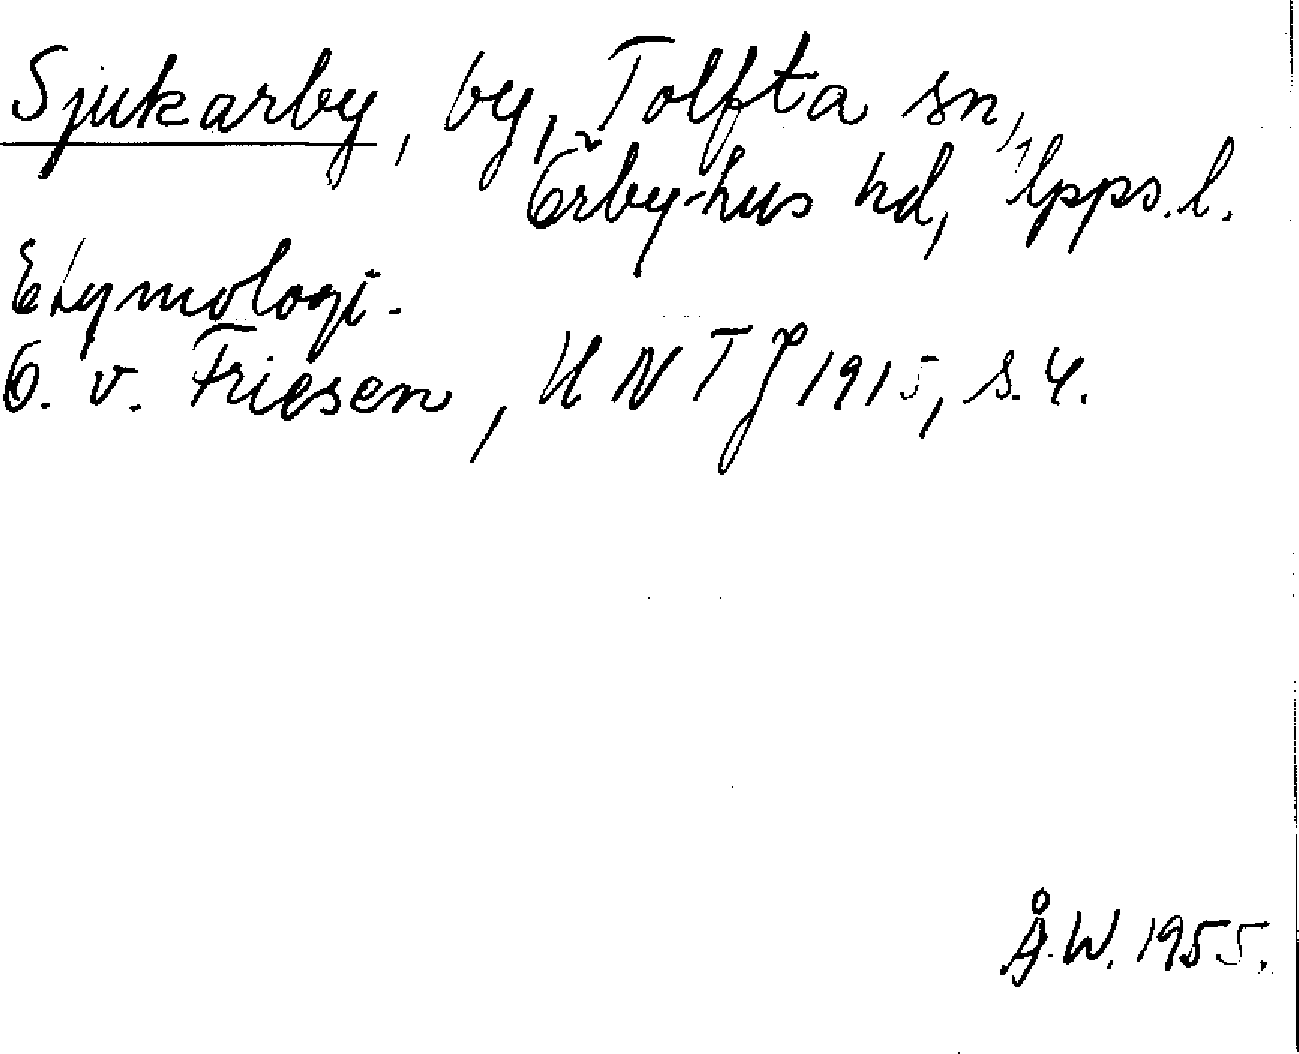 Sjukarby, by, Tolfta sn,
Örbyhus hd, Upps. l.
Etymologi.
O. v. Friesen, UNTJ 1915, s. 4.
Å.W. 1955.